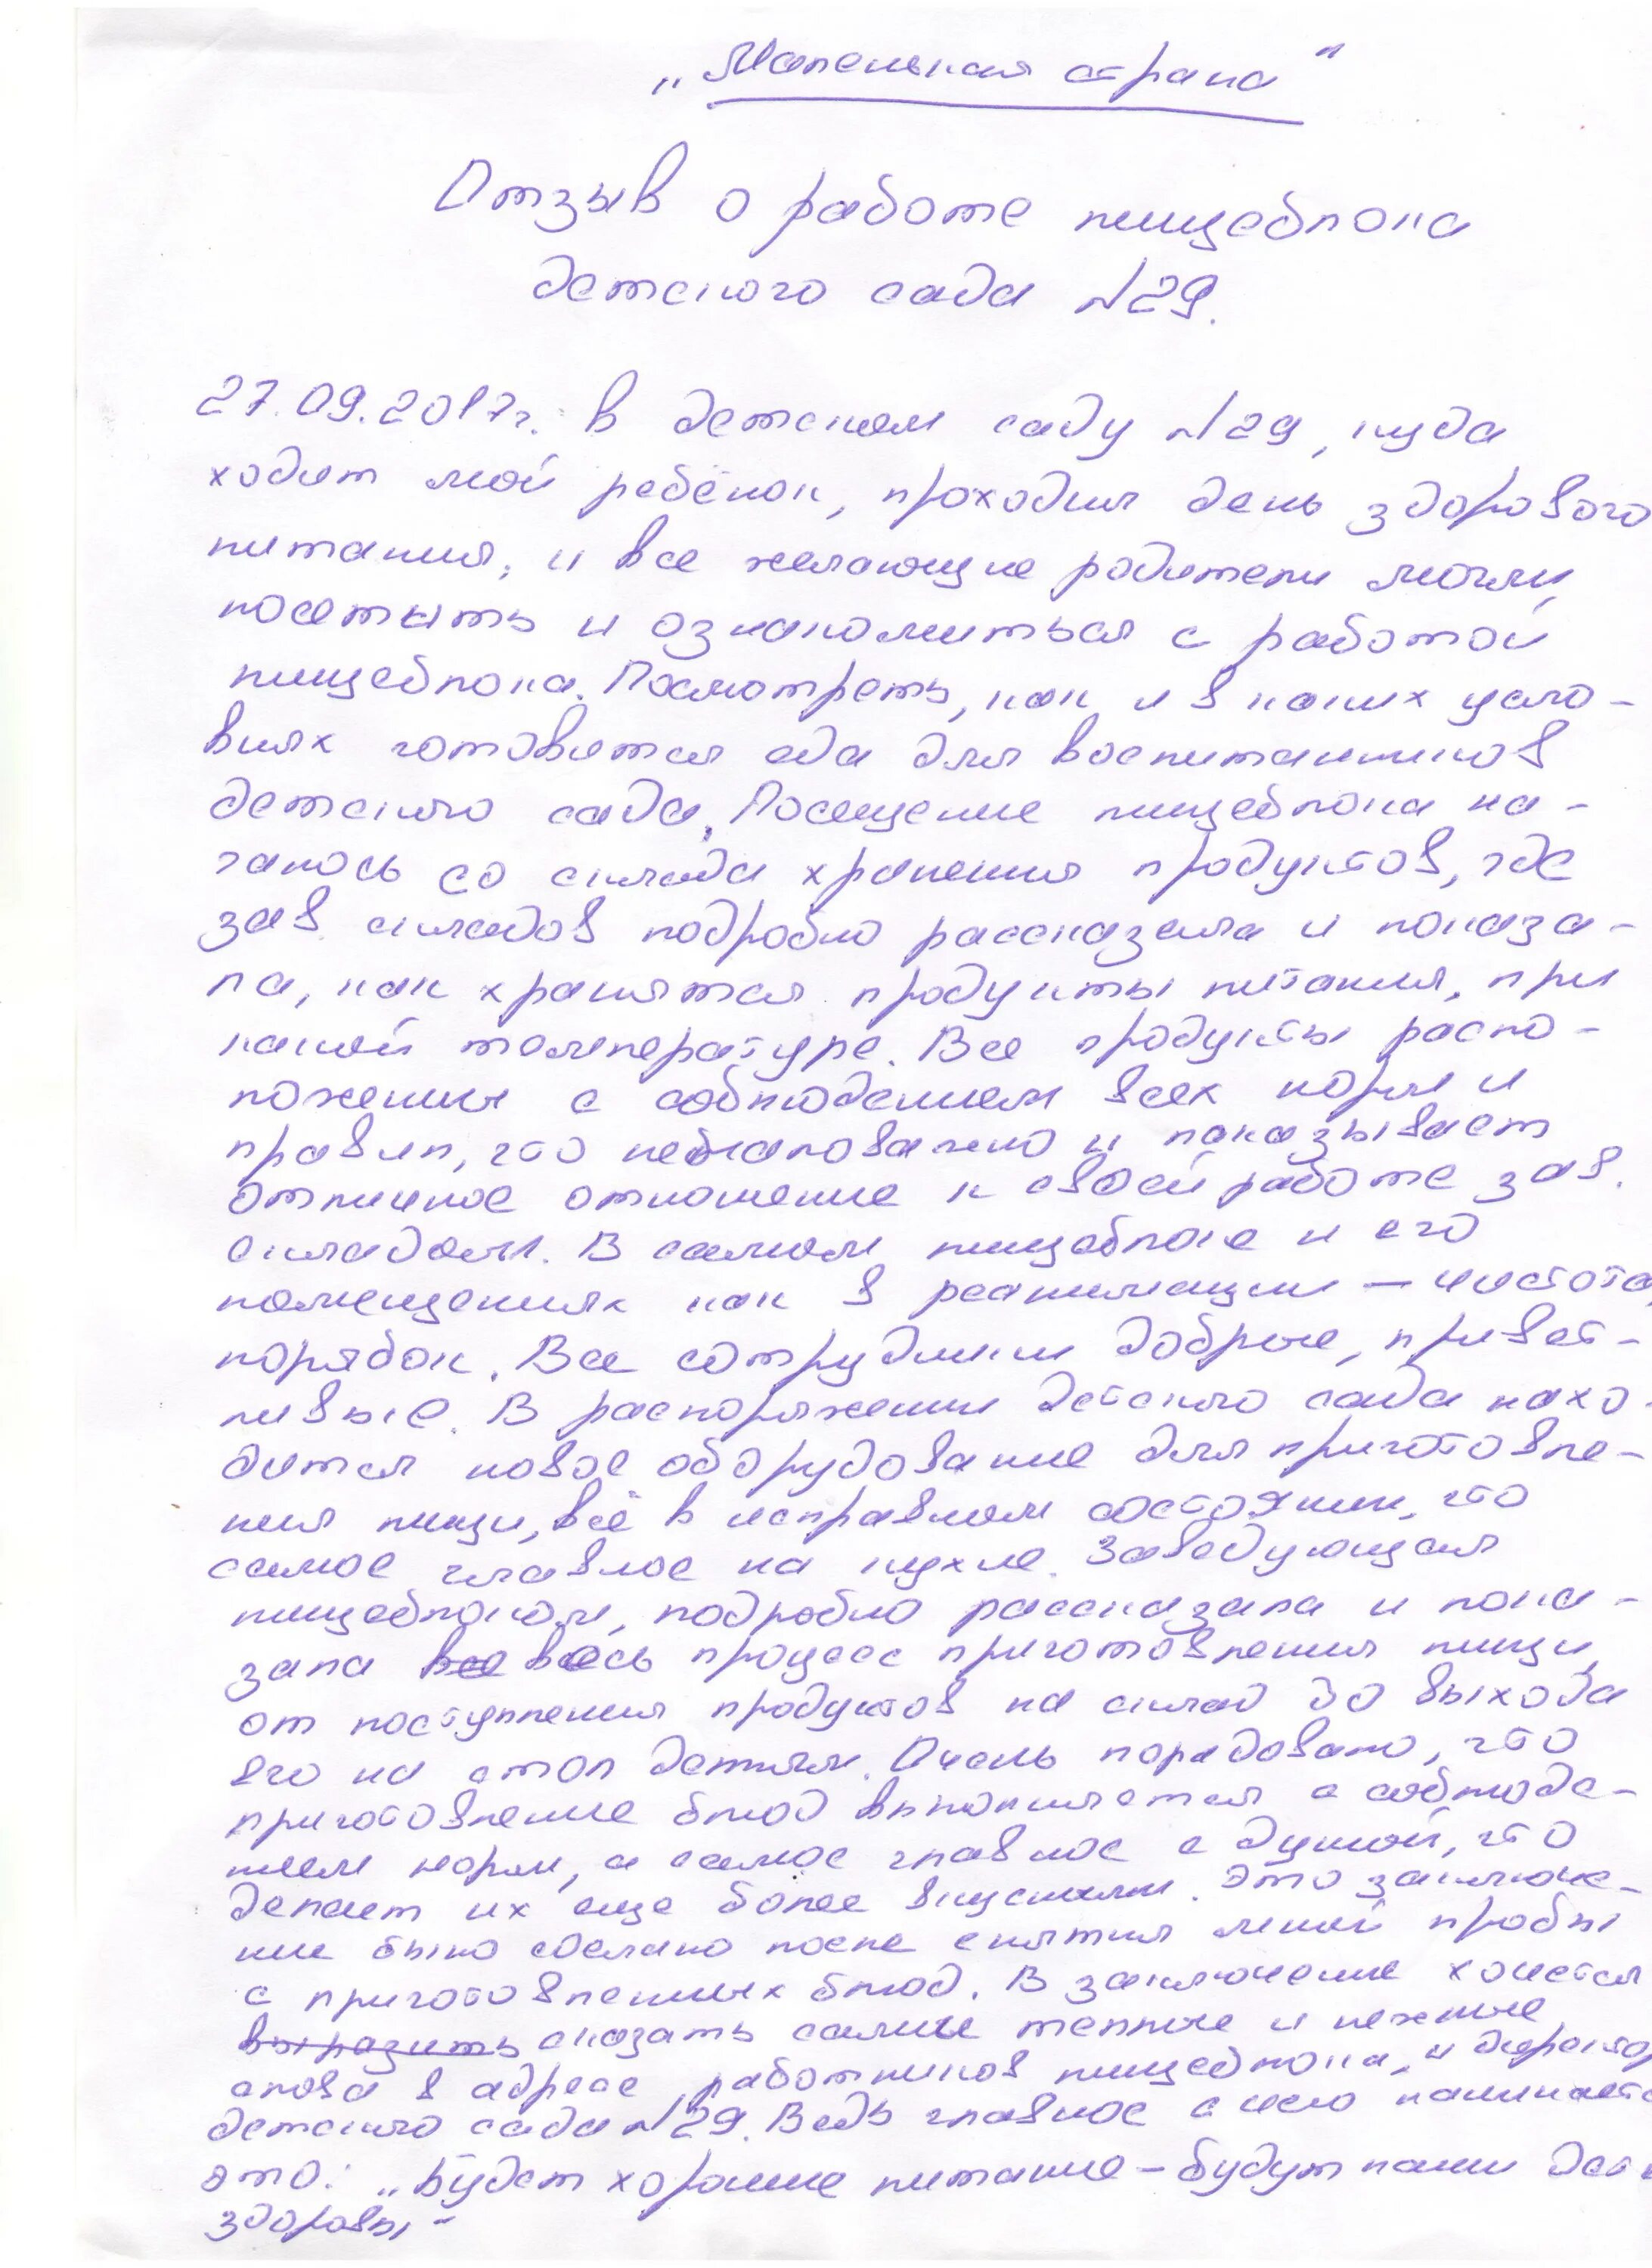 „Маленькая страна"
Отзыв о работе пищеблока
детского сада №29.
27.09.2017г. в детском саду №29, куда
ходит мой ребёнок, проходил день здорового
питания, и все желающие родители могли
посетить и ознакомиться с работой
пищеблока. Посмотреть, как и в каких усло-
виях готовится еда для воспитанников
детского сада. Посещение пищеблока на-
чалось со склада хранения продуктов, где
зав. складов подробно рассказала и показа-
ла, как хранятся продукты питания, при
какой температуре. Все продукты распо-
ложенны с соблюдением всех норм и
правил, что немаловажно и показывает
отличное отношение к своей работе зав.
складом. В самом пищеблоке и его
помещениях как в реанимации – чистота,
порядок. Все сотрудники добрые, привет-
ливые. В распоряжении детского сада нахо-
дится новое оборудование для приготовле-
ния пищи, всё в исправном состоянии, что
самое главное на кухне. Заведующая
пищеблоком, подробно рассказала и пока-
зала все весь процесс приготовления пищи,
от поступления продуктов на склад до выхода
его на стол детям. Очень порадовало, что
приготовление блюд выполняется с соблюде-
нием норм, а самое главное с душой, что
делает их еще более вкусными. Это заключе-
ние было сделано после снятия мной пробы
с приготовленных блюд. В заключение хочется
выразить сказать самые теплые и нежные
слова в адрес работников пищеблока, и
детского сада №29. Ведь главное с чего начинается
это: „Будет хорошее питание – будут наши дети
здоровы"